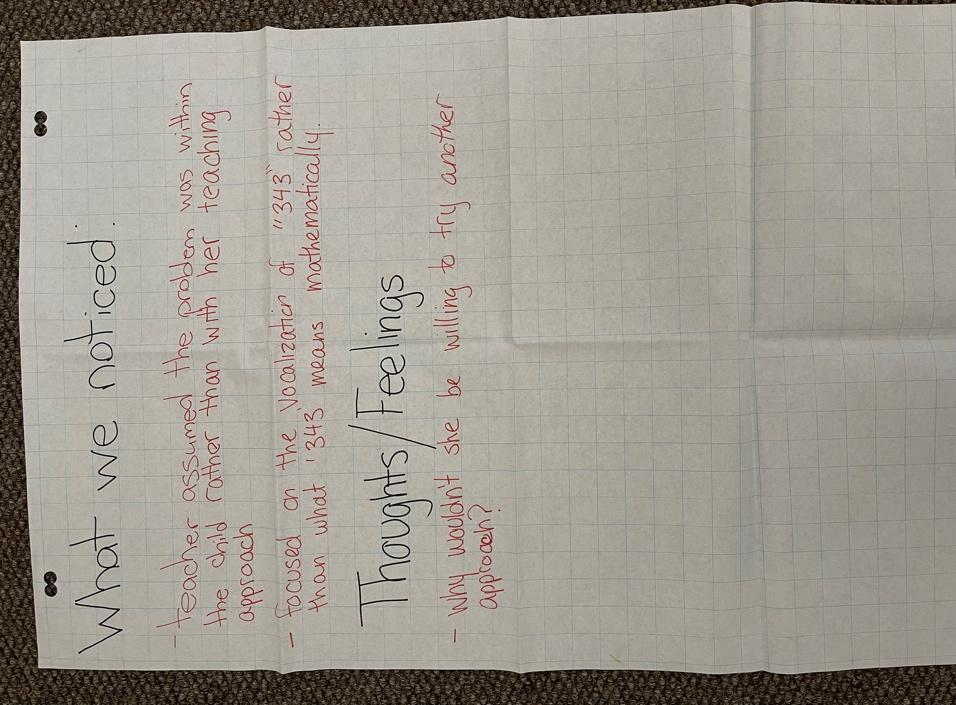 What we noticed.
- teacher assumed the problem was within
the child rather than with her teaching
approach
- focused on the vocalization of "343" rather
than what '343 means mathematically.
Thoughts/Feelings
- Why wouldn't she be willing to try another
approach?